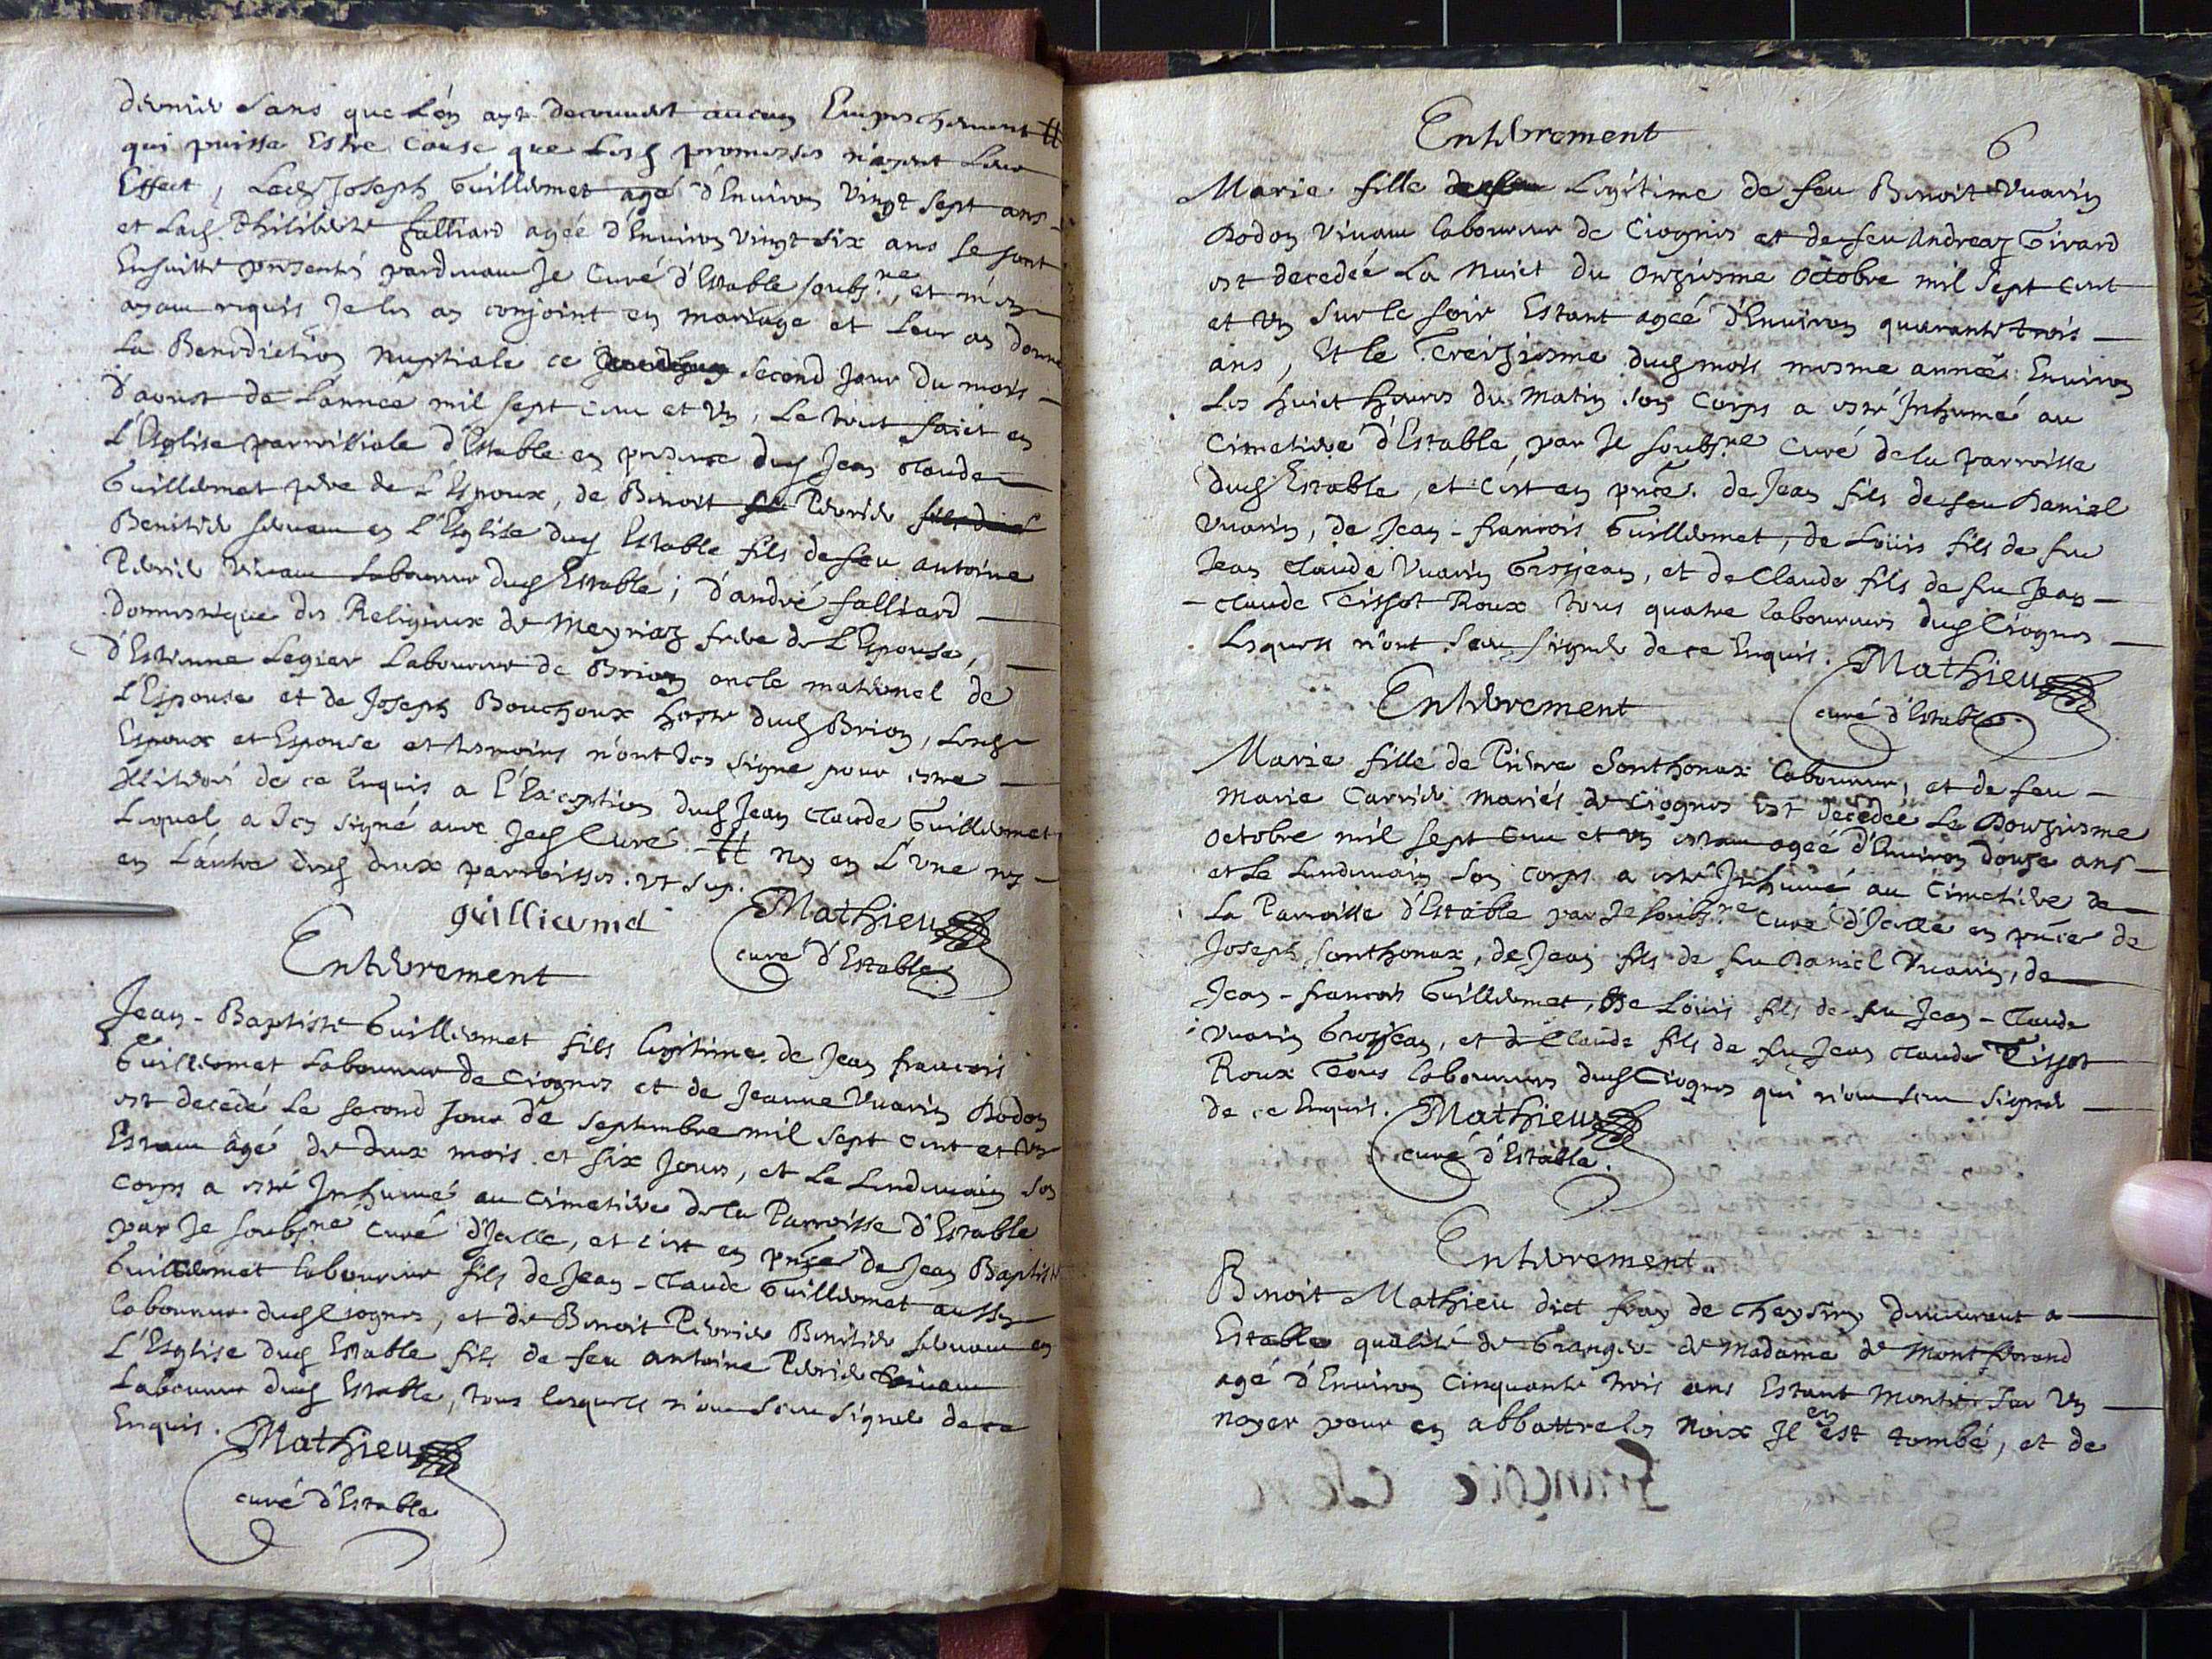 dernier sans que l'on ayt decouvert aucun Empeschement #
qui puisse Estre Cause que Lesd promesses n'ayent Leur
Effect, Led Joseph Guillermet agé d'Environ Vingt sept ans
et Lad. Philiberte falliard agéé d'Environ Vingt six ans se sont
Ensuitte presentés pardevant Je Curé d'Estable soubs.né, et m'en
ayant requis Je les ay conjoint en mariage et Leur ay donné
La Benediction Nuptiale ce second Jour du mois
D'aoust de L'année mil sept Cent et Un, Le tout faict en
L'Eglise parroissiale d'Estable en presence dud Jean Claude
Guillermet pere de L'Espoux, de Benoit Perrier
Benitier servant en L'Eglise dud Estable fils de feu antoine
Perrier vivant Laboureur dud Estable; D'andré falliard
Domestique des Religieux de Meyriaz frere de L'Espouse,
D'Estienne Legier Laboureur de Brion oncle maternel de
L'Espouse et de Joseph Bouchoux hoste dud Brion, Lesd
Espoux et Espouse et tesmoins n'ont signé pour estre
Illiterés de ce Enquis a L'Exception dud Jean Claude Guillermet
Lequel a signé avec Jed Curé. # Ny en L'une ny
en L'autre desd deux parroisses. ut sup.
guilliermet Mathieu
curé d'Estable
Enterrement
Jean-Baptiste Guillermet fils legitime de Jean francois
Guillermet Laboureur de Ciognes et de Jeanne Vuarin Bodon
est decedé Le second Jour de septembre mil sept Cent et Un
Estant âgé de deux mois et six Jours, et Le Lendemain son
Corps a esté Inhumé au Cimetiere de la Parroisse d'Estable
par Je soubs.né Curé d'Jcelle, et c'est en pnce de Jean Baptiste
Guillermet laboureur fils de Jean-Claude Guillermet aussy
laboureur dud Ciognes, et de Benoit Perrier Benitier servant en
L'Eglise dud Estable fils de feu antoine Perrier vivant
Laboureur dud Estable, tous lesquels n'ont sceu signer de ce
Enquis. Mathieu
curé d'Estable
6
Enterrement
Marie fille Legitime de feu Benoit Vuarin
Bodon Vivant laboureur de Ciognes et de feu Andreaz Girard
est decedéé La Nuict du onziesme Octobre mil sept Cent
et Un sur le soir Estant agéé d'Environ quarante trois
ans, Et le Treiziesme dud mois mesme année Environ
Les huict heures du Matin son Corps a esté Inhumé au
Cimetiere d'Estable, par Je soubs.né Curé de la parroisse
dud Estable, et c'est en pnce. de Jean fils de feu Daniel
Vuarin, de Jean-francois Guillermet, de Loüis fils de feu
Jean Claude Vuarin Grosjean, et de Claude fils de feu Jean
-Claude Tissot Roux tous quatre laboureurs dud Ciognes
Lesquels n'ont sceu signer de ce Enquis. Mathieu
curé d'Estable.
Enterrement
Marie fille de Pierre Sonthonax laboureur, et de feu
Marie Carrier mariés de Ciognes est decedéé Le Douziesme
Octobre mil sept Cent et Un estant agéé d'Environ douze ans
et Le Lendemain son Corps a esté Inhumé au Cimetiere de
La Parroisse d'Estable par Je soubs.né Curé d'Jcelle en pnce de
Joseph Sonthonax, de Jean fils de feu Daniel Vuarin, de
Jean-francois Guillermet, De Loüis fils de feu Jean-Claude
Vuarin Grosjean, et de Claude fils de feu Jean Claude Tissot
Roux Tous laboureurs dud Ciognes qui n'ont sceu signer
de ce Enquis. Mathieu
curé d'Estable.
Enterrement.
Benoit Mathieu dict fray de Cheysiny demeurant a
Estable qualité de Granger de Madame de Montferrand
agé d'Environ Cinquante trois ans Estant Monté sur Un
noyer pour en abbattre les Noix Jl en est tombé, et de